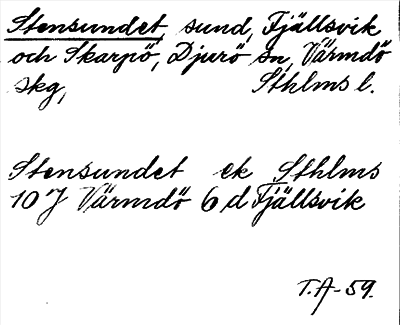 Stensundet, sund, Fjällsvik
och Skarpö, Djurö sn, Värmdö
skg, Sthlms l.
Stensundet ek Sthlms
10 J Värmdö 6 d Fjällsvik
T.A-59.